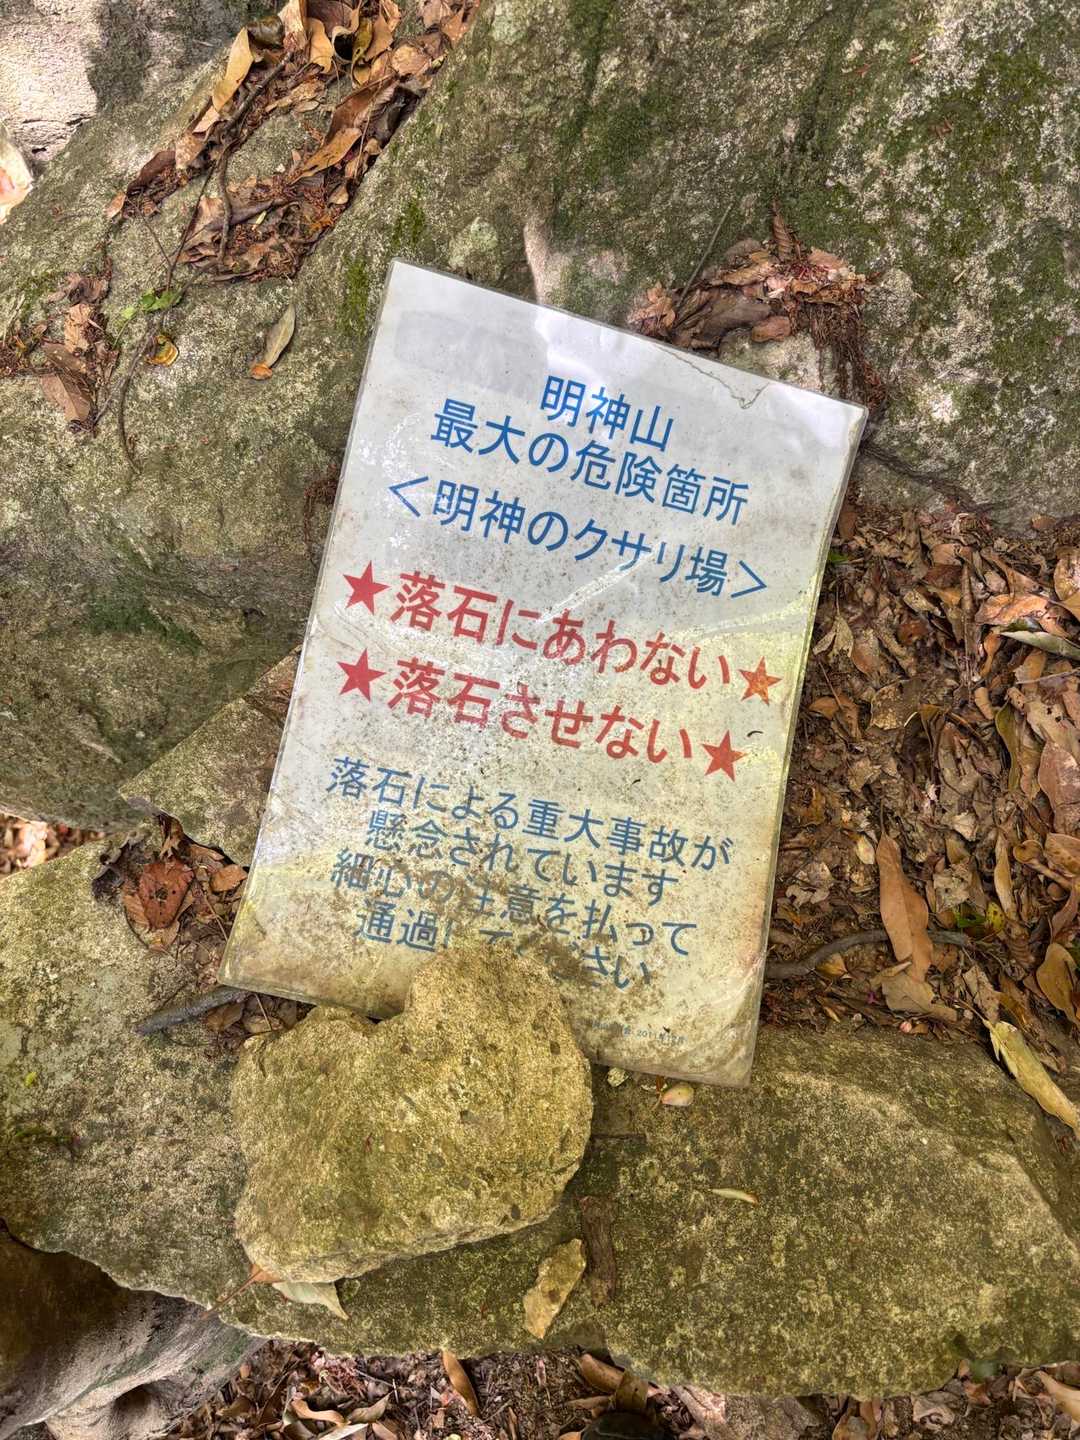 明神山
最大の危険箇所
＜明神のクサリ場＞
★落石にあわない★
★落石させない★
落石による重大事故が
懸念されています
細心の注意を払って
通過してください